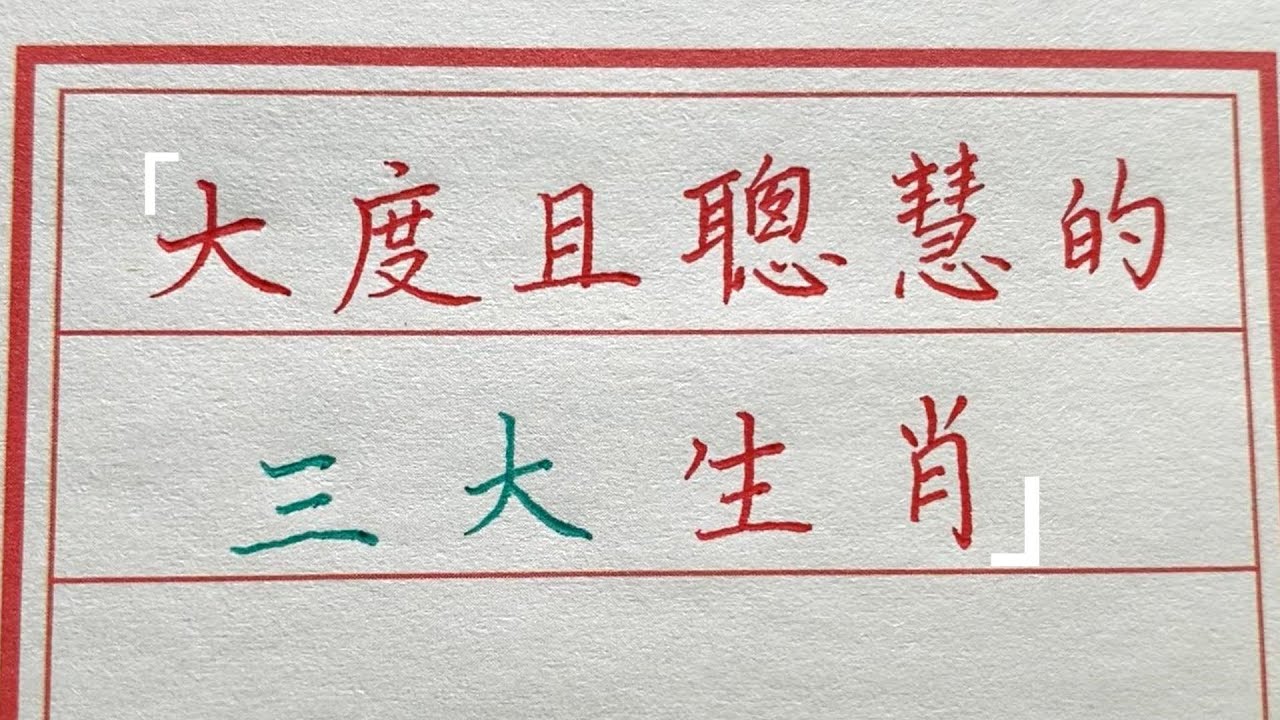 「大度且聰慧的
三大生肖」